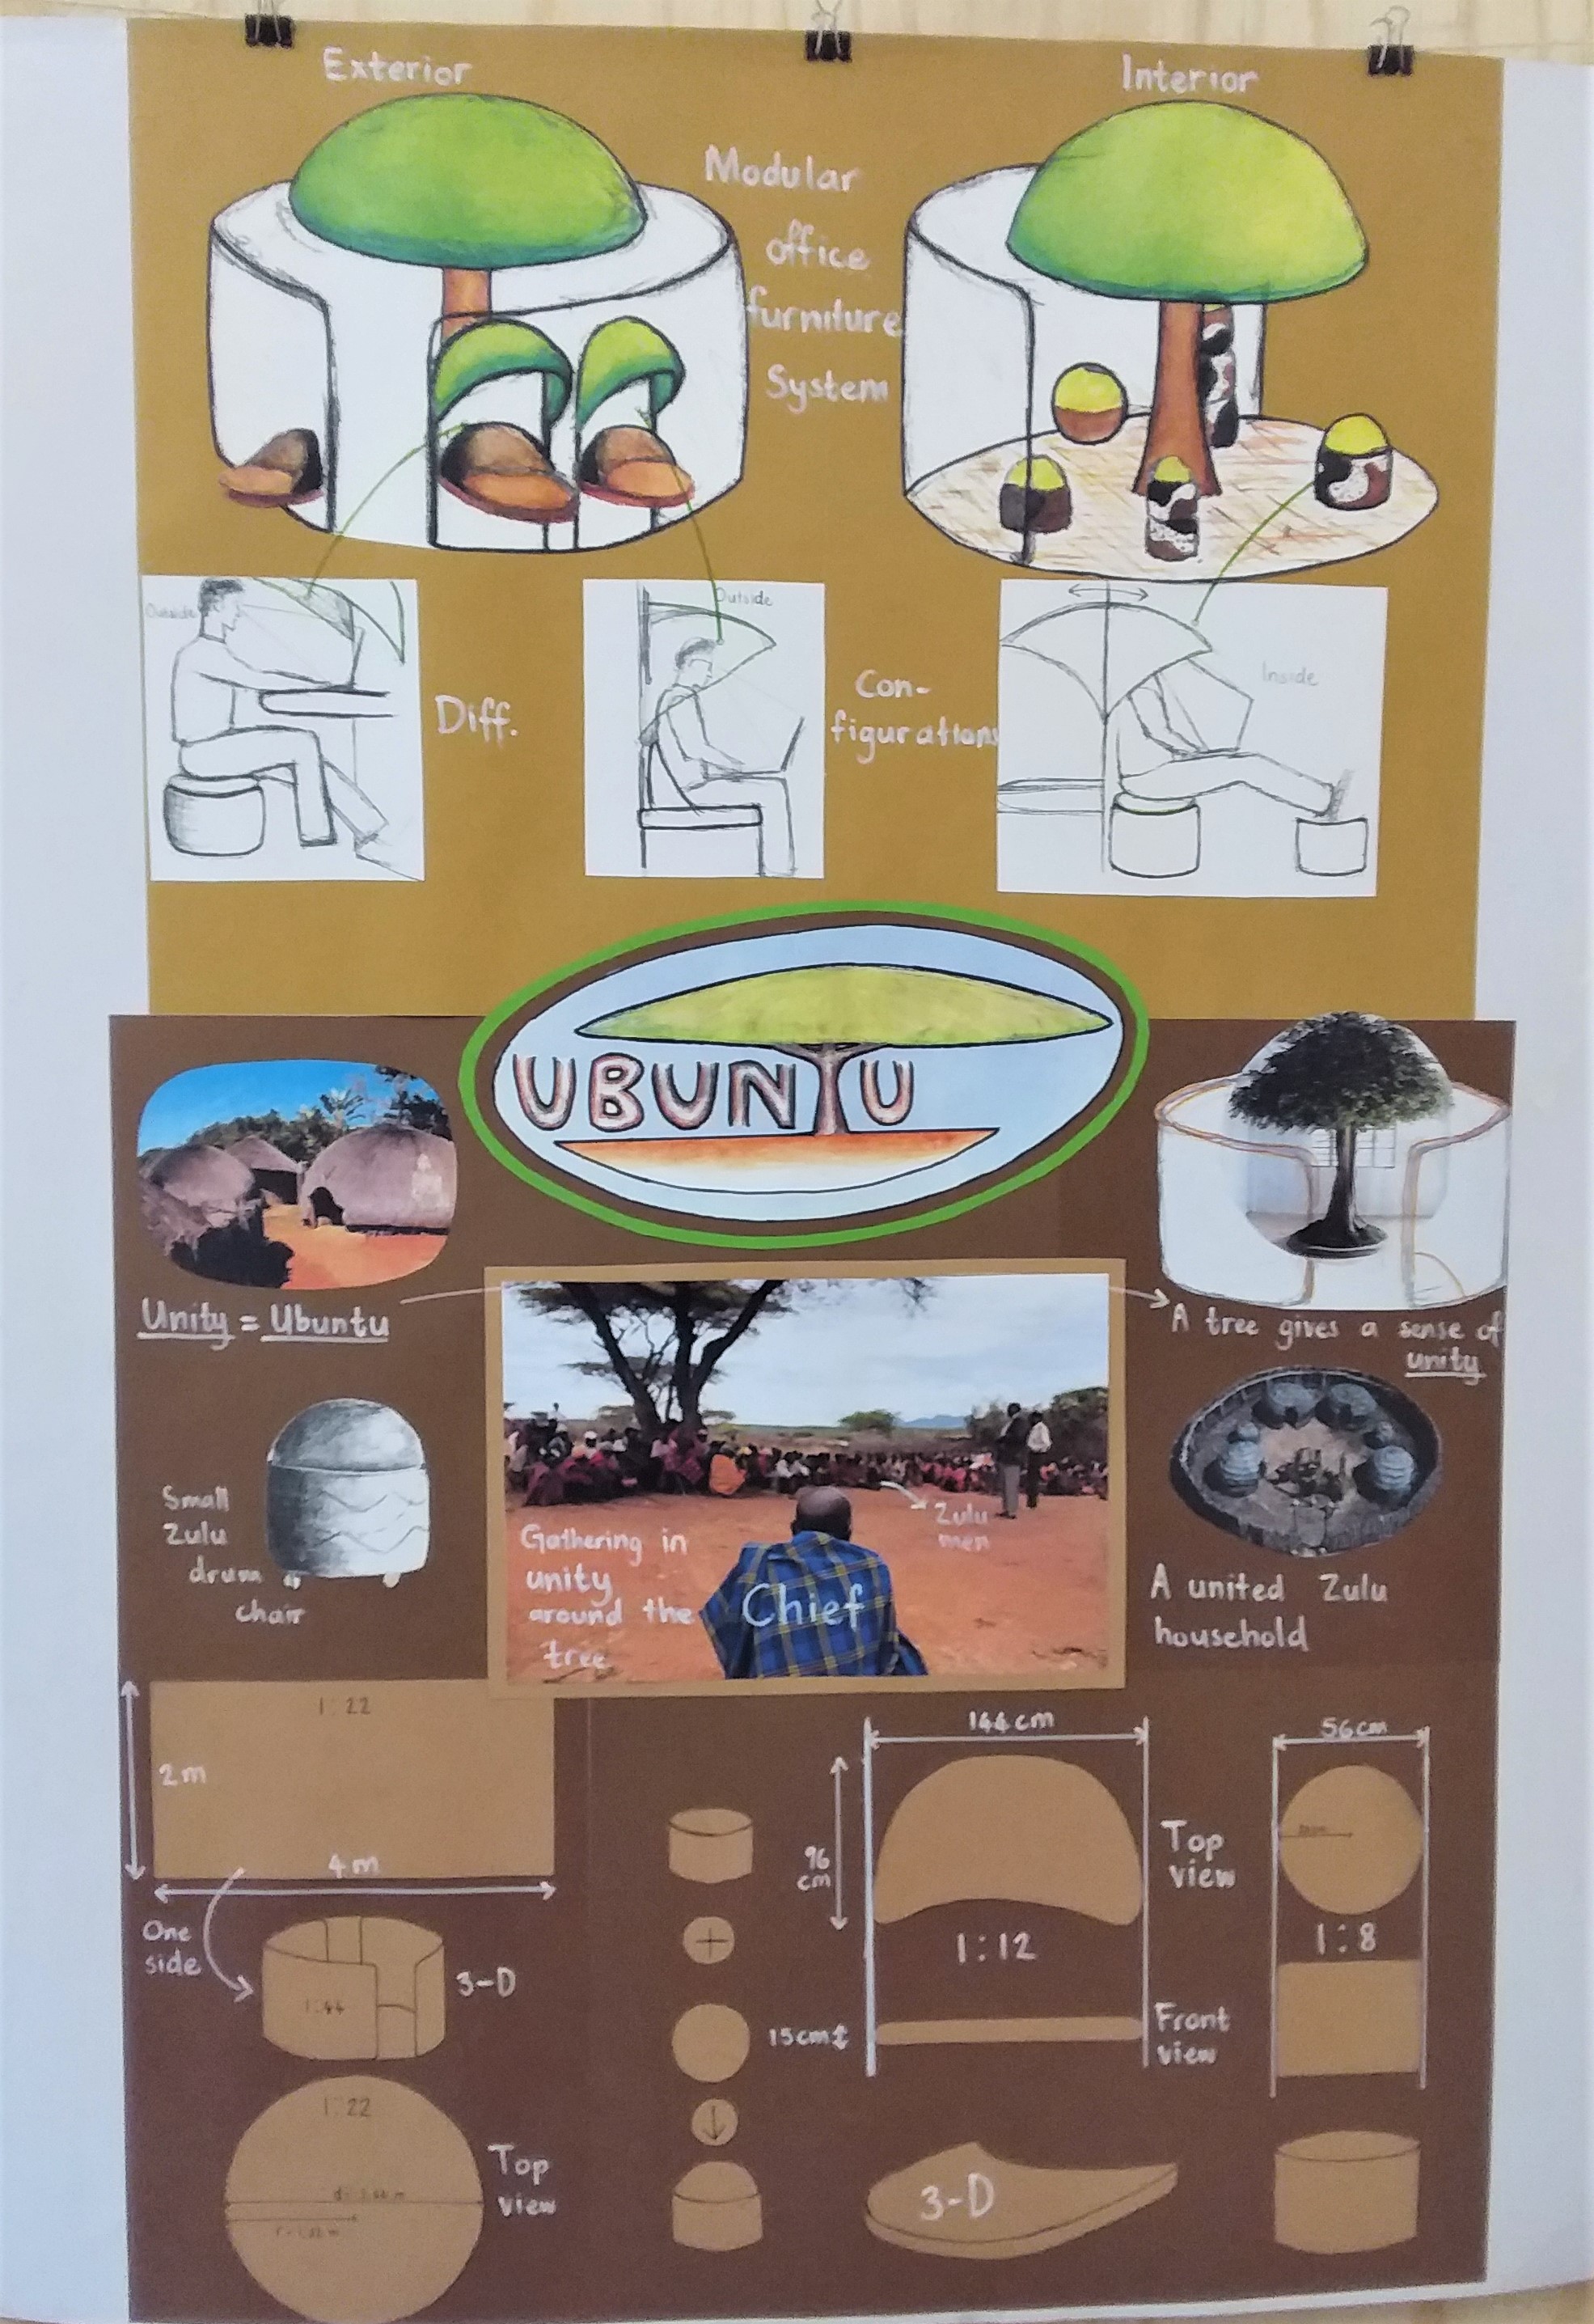 Exterior
Interior
Modular
office
furniture
System
Outside
Outside
Inside
Diff.
Con-
figurations
UBUNTU
Unity = Ubuntu
A tree gives a sense of
unity
Small
Zulu
drum
chair
Gathering in
unity
around the
tree
Zulu
men
Chief
A united Zulu
household
1:22
2m
4m
One
side
1:44
3-D
1:22
Top
view
15cm
144cm
96
cm
Top
view
1:12
Front
view
3-D
56cm
1:8